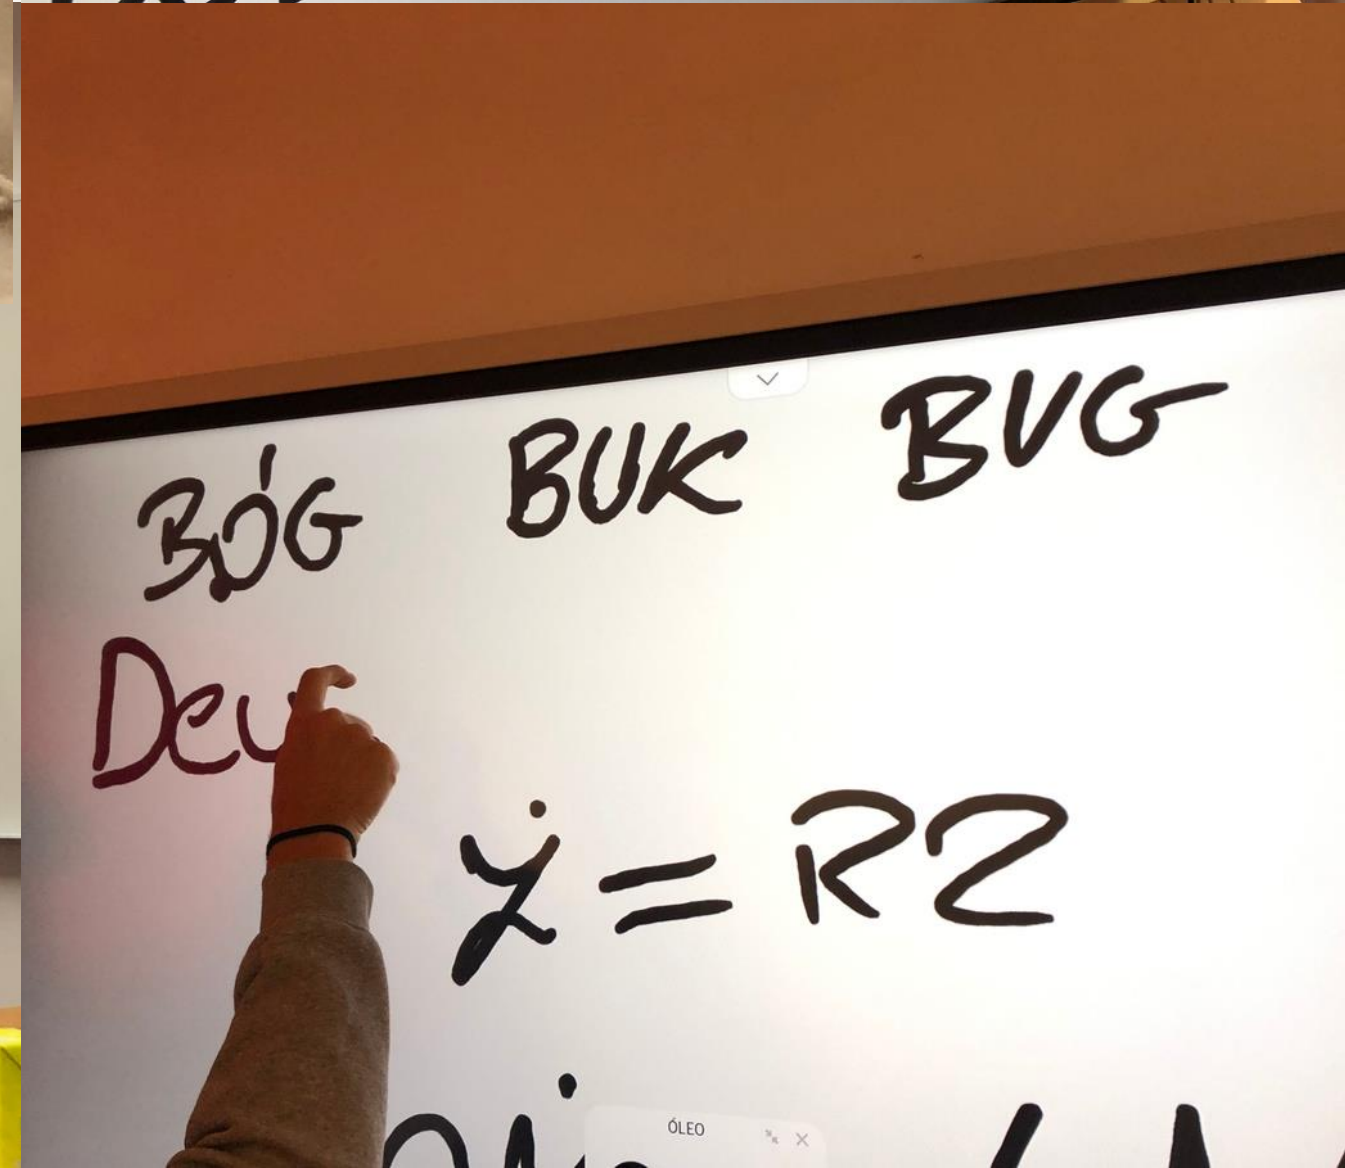 BÓG BUK BUG
Deu
ż = RZ
ÓLEO